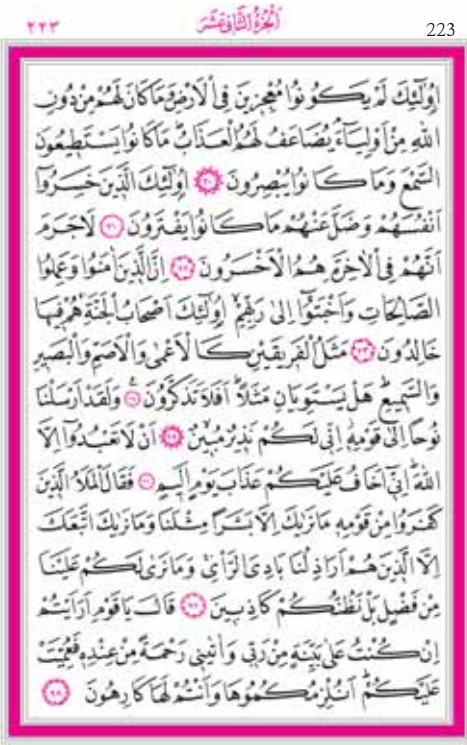 ٢٢٣ اَلْجُزْءُ الثَّانِي عَشَرَ 223
اُولٰٓئِكَ لَمْ يَكُونُوا مُعْجِزِينَ فِي الْاَرْضِ وَمَا كَانَ لَهُمْ مِنْ دُونِ
اللّٰهِ مِنْ اَوْلِيَٓاءَ يُضَاعَفُ لَهُمُ الْعَذَابُ مَا كَانُوا يَسْتَطِيعُونَ
السَّمْعَ وَمَا كَانُوا يُبْصِرُونَ ﴿٢٠﴾ اُولٰٓئِكَ الَّذِينَ خَسِرُٓوا
اَنْفُسَهُمْ وَضَلَّ عَنْهُمْ مَا كَانُوا يَفْتَرُونَ ﴿٢١﴾ لَاجَرَمَ
اَنَّهُمْ فِي الْاٰخِرَةِ هُمُ الْاَخْسَرُونَ ﴿٢٢﴾ اِنَّ الَّذِينَ اٰمَنُوا وَعَمِلُوا
الصَّالِحَاتِ وَاَخْبَتُٓوا اِلٰى رَبِّهِمْ اُولٰٓئِكَ اَصْحَابُ الْجَنَّةِ هُمْ فِيهَا
خَالِدُونَ ﴿٢٣﴾ مَثَلُ الْفَرِيقَيْنِ كَالْاَعْمٰى وَالْاَصَمِّ وَالْبَصِيرِ
وَالسَّمِيعِ هَلْ يَسْتَوِيَانِ مَثَلًا اَفَلَا تَذَكَّرُونَ ﴿٢٤﴾ وَلَقَدْ اَرْسَلْنَا
نُوحًا اِلٰى قَوْمِهٖ اِنِّي لَكُمْ نَذِيرٌ مُبِينٌ ﴿٢٥﴾ اَنْ لَا تَعْبُدُٓوا اِلَّا
اللّٰهَ اِنِّٓي اَخَافُ عَلَيْكُمْ عَذَابَ يَوْمٍ اَلِيمٍ ﴿٢٦﴾ فَقَالَ الْمَلَاُ الَّذِينَ
كَفَرُوا مِنْ قَوْمِهٖ مَا نَرٰيكَ اِلَّا بَشَرًا مِثْلَنَا وَمَا نَرٰيكَ اتَّبَعَكَ
اِلَّا الَّذِينَ هُمْ اَرَاذِلُنَا بَادِيَ الرَّأْيِ وَمَا نَرٰى لَكُمْ عَلَيْنَا
مِنْ فَضْلٍ بَلْ نَظُنُّكُمْ كَاذِبِينَ ﴿٢٧﴾ قَالَ يَا قَوْمِ اَرَاَيْتُمْ
اِنْ كُنْتُ عَلٰى بَيِّنَةٍ مِنْ رَبِّي وَاٰتٰينِي رَحْمَةً مِنْ عِنْدِهٖ فَعُمِّيَتْ
عَلَيْكُمْ اَنُلْزِمُكُمُوهَا وَاَنْتُمْ لَهَا كَارِهُونَ ﴿٢٨﴾